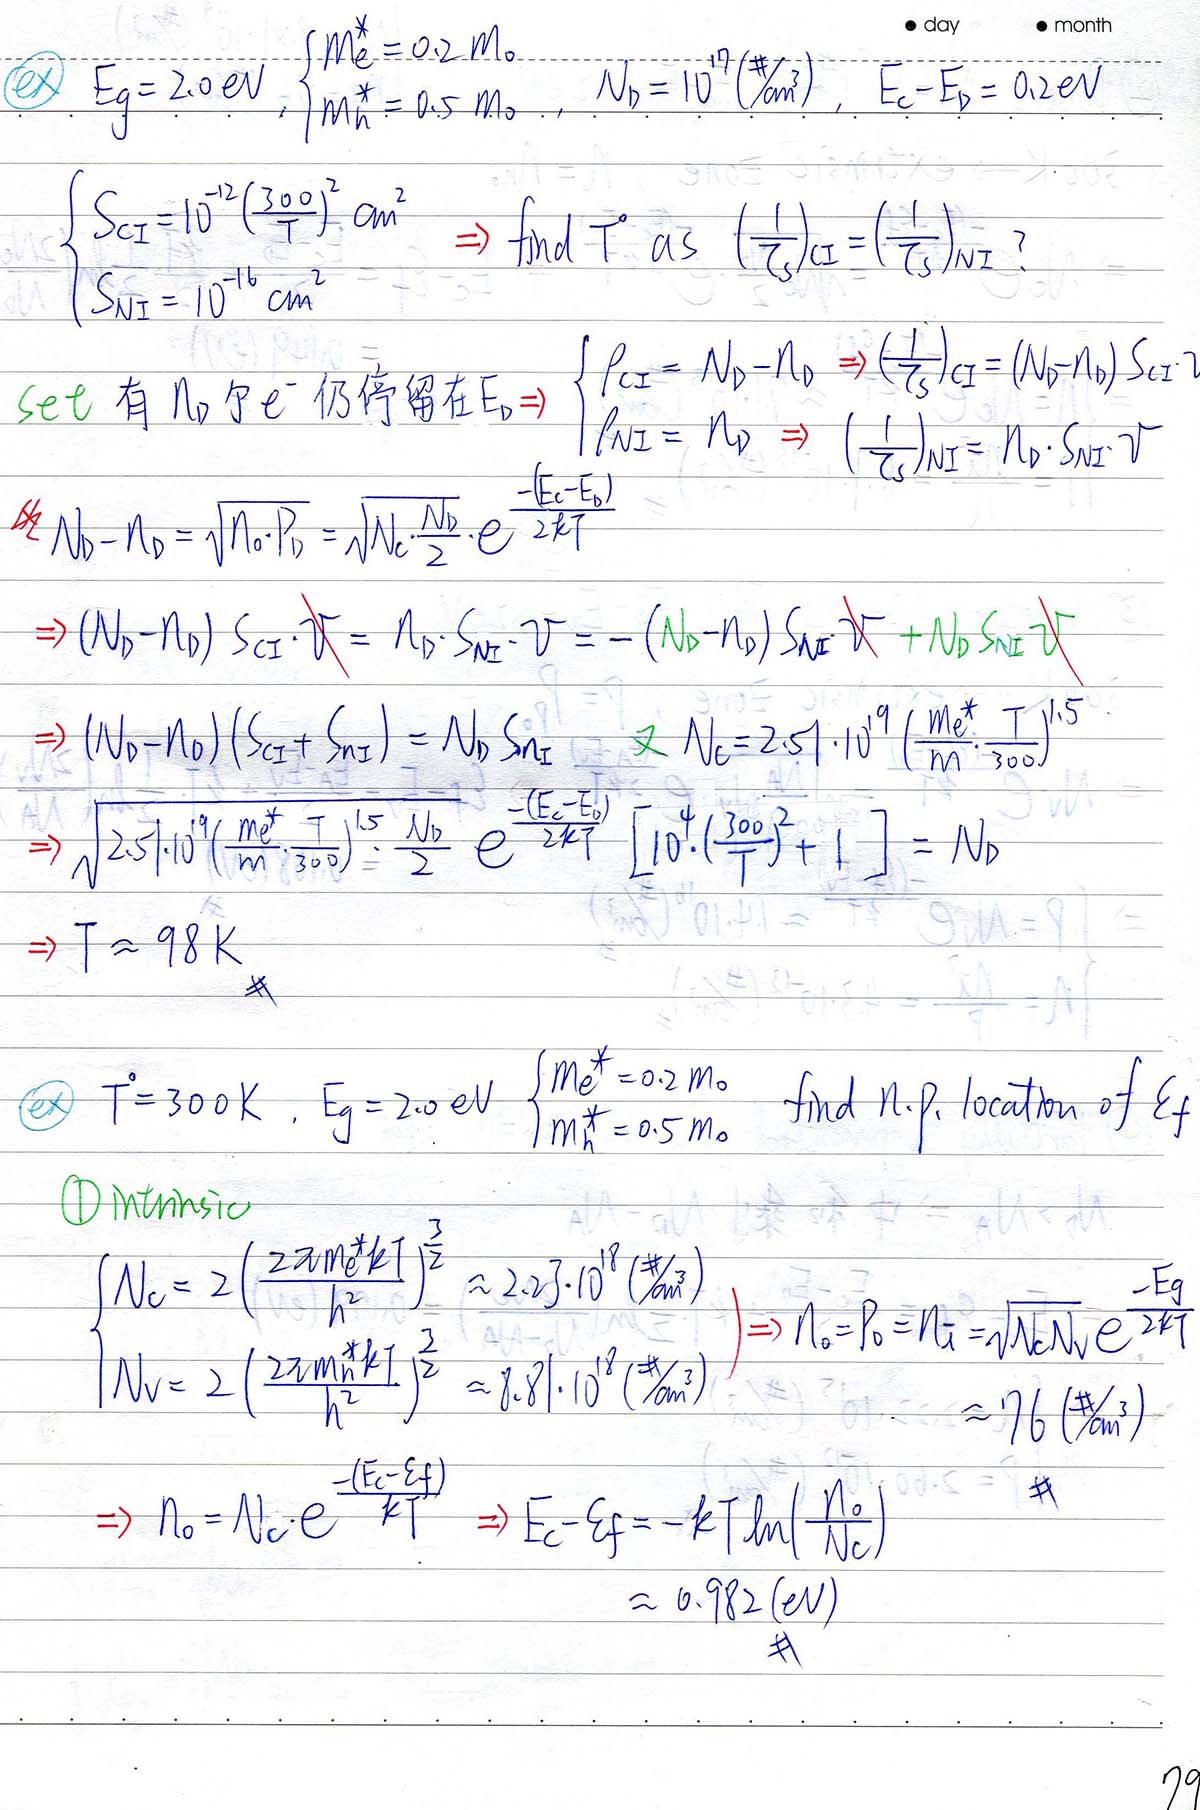 ● day ● month
ex Eg = 2.0 eV, { me* = 0.2 m₀ , mh* = 0.5 m₀ , N_D = 10^17 (#/cm³) , Ec − E_D = 0.2 eV
{ S_CI = 10^-12 (300/T)² cm²
S_NI = 10^-16 cm² ⇒ find T° as (1/τs)_CI = (1/τs)_NI ?
set 有 n_D 个 e⁻ 仍停留在 E_D ⇒ { ρ_CI = N_D − n_D ⇒ (1/τs)_CI = (N_D − n_D) S_CI · v
ρ_NI = n_D ⇒ (1/τs)_NI = n_D · S_NI · v
故 N_D − n_D = √(n₀·P_D) = √(Nc · N_D/2) · e^(−(Ec−E_D)/2kT)
⇒ (N_D − n_D) S_CI · v = n_D · S_NI · v = −(N_D − n_D) S_NI · v + N_D S_NI v
⇒ (N_D − n_D)(S_CI + S_NI) = N_D S_NI 又 Nc = 2.51·10^19 (me*/m · T/300)^1.5
⇒ √(2.51·10^19 (me*/m · T/300)^1.5 · N_D/2) e^(−(Ec−E_D)/2kT) [10^4·(300/T)² + 1] = N_D
⇒ T ≈ 98 K #
ex T° = 300 K , Eg = 2.0 eV { me* = 0.2 m₀ , mh* = 0.5 m₀ find n.p. location of εf
① intrinsic
{ Nc = 2 (2πme*kT/h²)^(3/2) ≈ 2.23·10^18 (#/cm³) ⇒ n₀ = P₀ = ni = √(NcNv) e^(−Eg/2kT)
Nv = 2 (2πmh*kT/h²)^(3/2) ≈ 8.81·10^18 (#/cm³) ≈ 76 (#/cm³) #
⇒ n₀ = Nc · e^(−(Ec−εf)/kT) ⇒ Ec − εf = −kT ln(n₀/Nc)
≈ 0.982 (eV) #
79